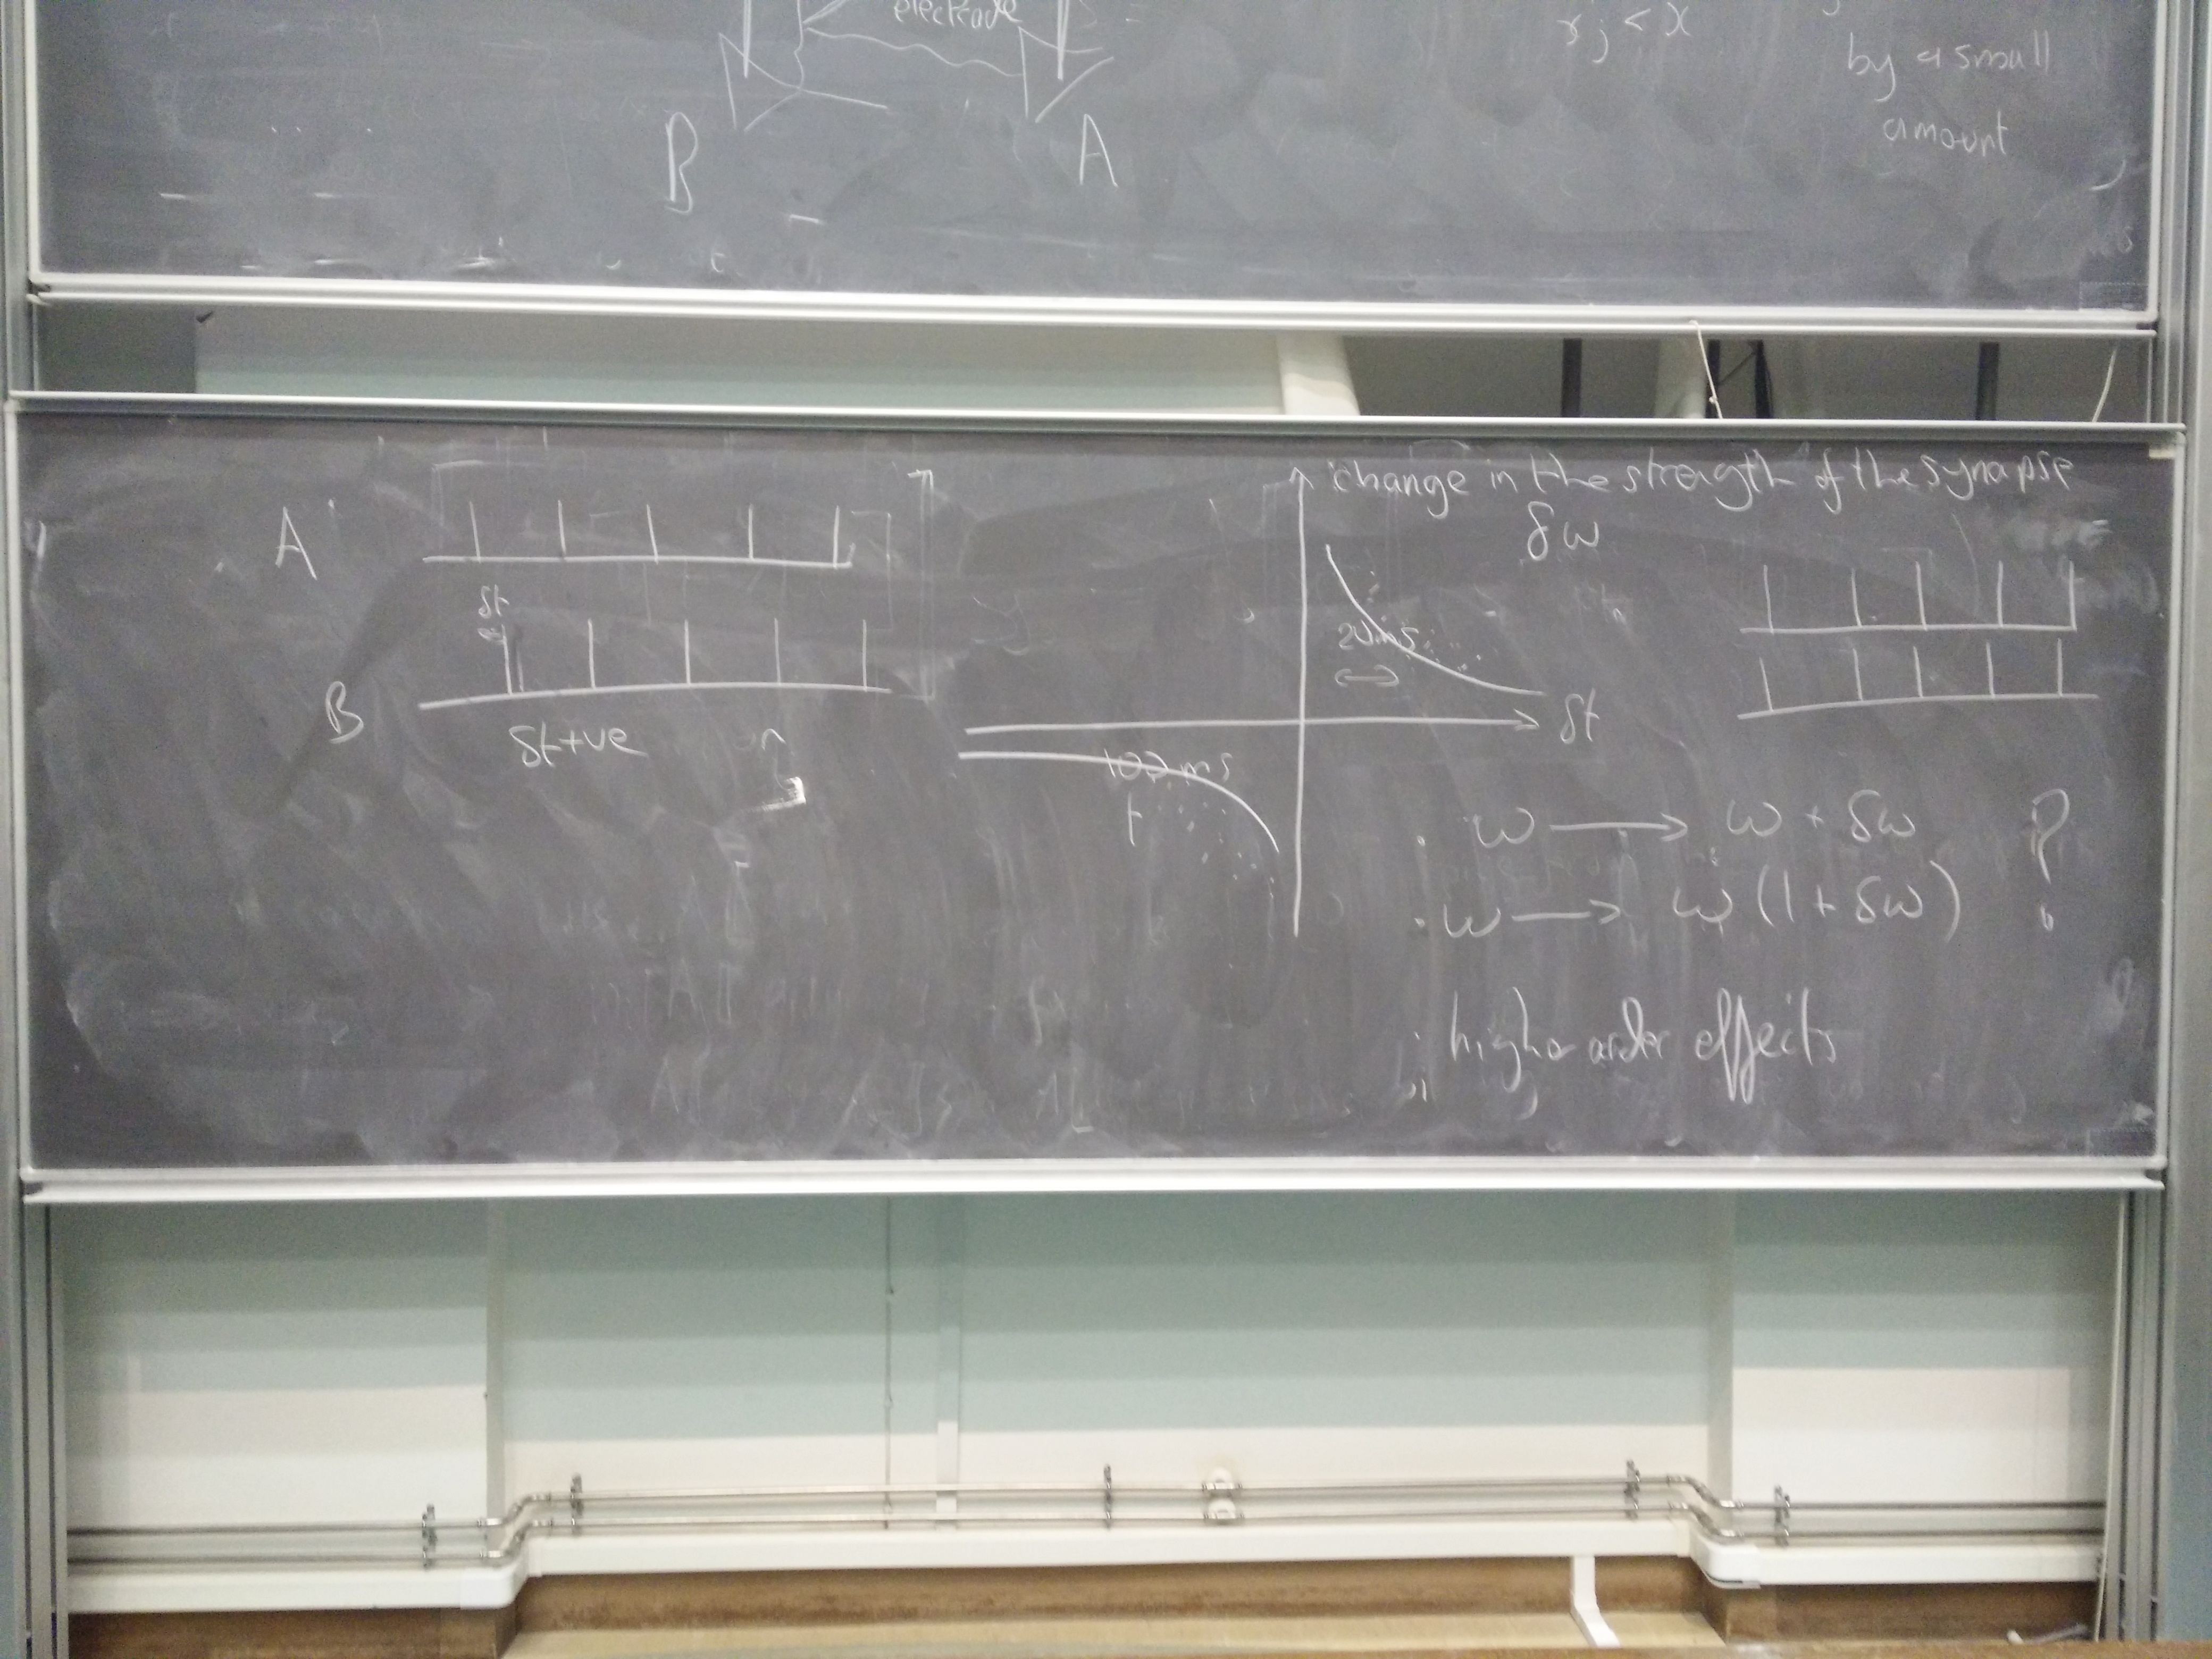 electrode
B
A
by a small
amount
change in the strength of the synapse
δw
A
δt
B
δt+ve
20ms
δt
100ms
w → w + δw
?
w → w (1 + δw)
higher order effects